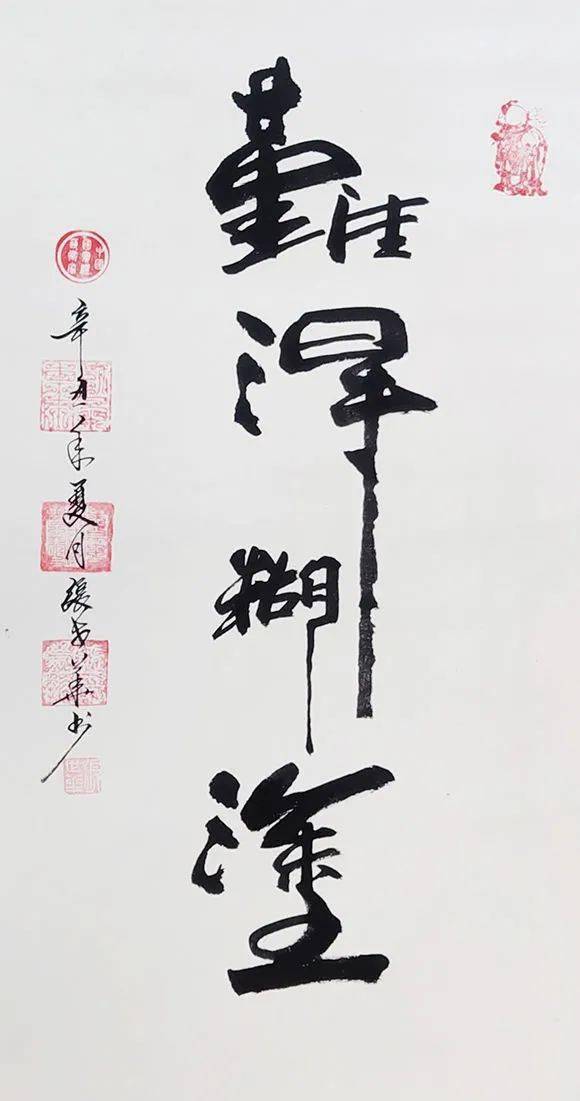 難得糊塗
辛丑年夏月張世華書